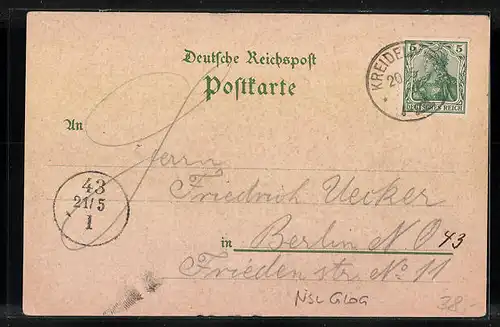 Deutsche Reichspost
Postkarte
5 5
DEUTSCHES REICH
KREIDE
20
An
Herrn
Friedrich Uecker
in Berlin N O 43
Friedenstr. No 11
43
21/5
1
NSL GLOG
38,-